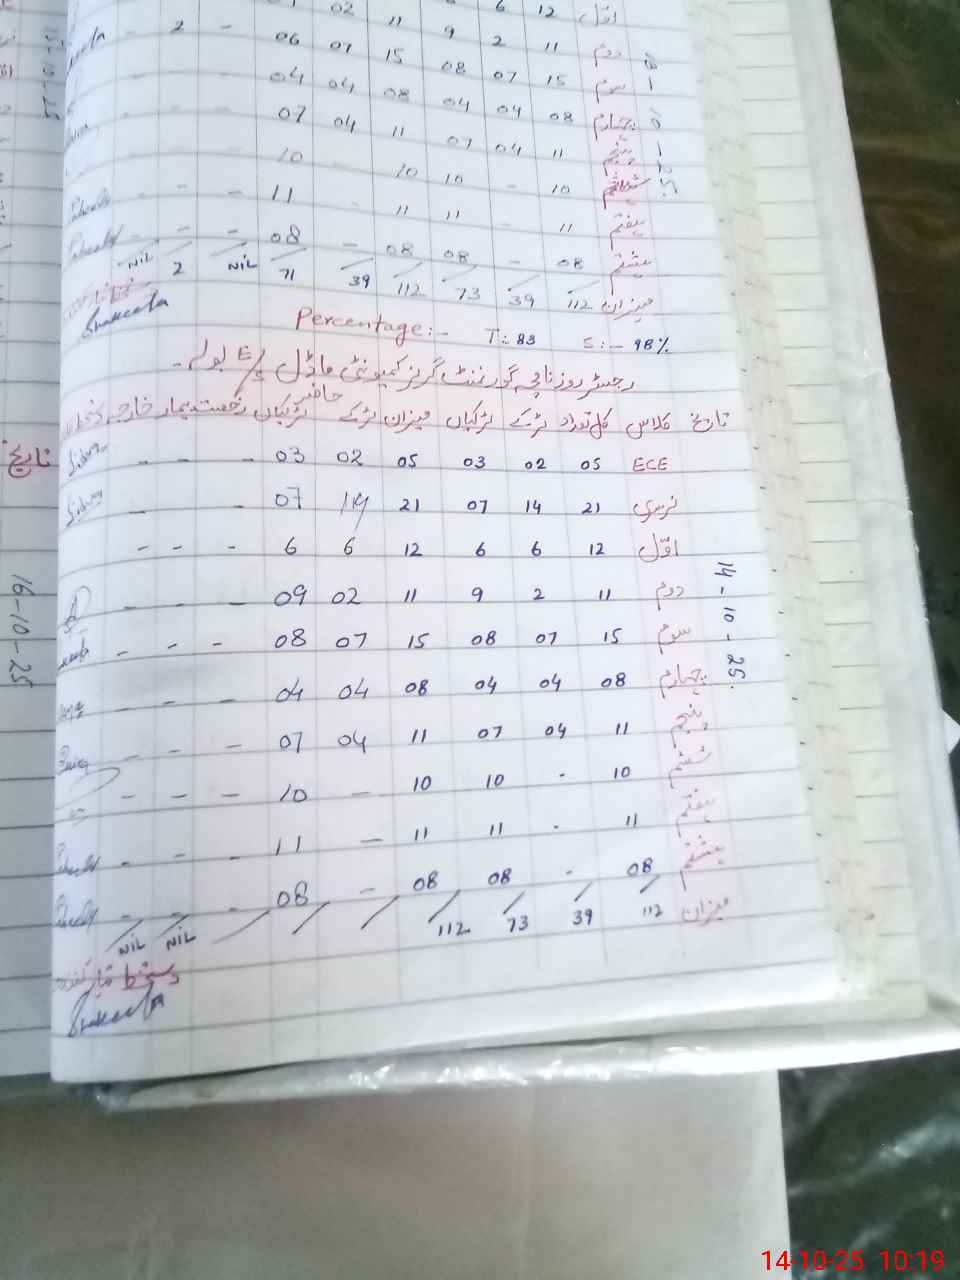 اوّل 12 6 02
دوم 11 2 9 11 - 2 -
سوم 15 07 08 15 07 06
چہارم 08 04 04 08 04 04
پنجم 11 04 07 11 04 07
ششم 10 - 10 10 10
ہفتم 11 - 11 11 11 - - -
ہشتم 08 - 08 08 - 08 - - -
میزان 112 39 73 112 39 71 NIL 2 NIL
13-10-25
Shakeela
Percentage:- T:- 83 S:- 98%
رجسٹر روزنامچہ گورنمنٹ گرلز کمیونٹی ماڈل E/S بولم۔
تاریخ کلاس کل تعداد لڑکے لڑکیاں میزان حاضر لڑکے لڑکیاں رخصت بیمار خارجہ
ECE 05 02 03 05 02 03 - - -
نرسری 21 14 07 21 14 07 - -
اوّل 12 6 6 12 6 6 - - -
دوم 11 2 9 11 02 09 - - -
سوم 15 07 08 15 07 08 - - -
چہارم 08 04 04 08 04 04 - - -
پنجم 11 04 07 11 04 07 - - -
ششم 10 - 10 10 - 10 - - -
ہفتم 11 - 11 11 - 11 - - -
ہشتم 08 - 08 08 - 08 - - -
میزان 112 39 73 112 NIL NIL
14-10-25
دستخط تیار کنندہ
Shakeela
15-10-25
تاریخ
16-10-25
14-10-25 10:19